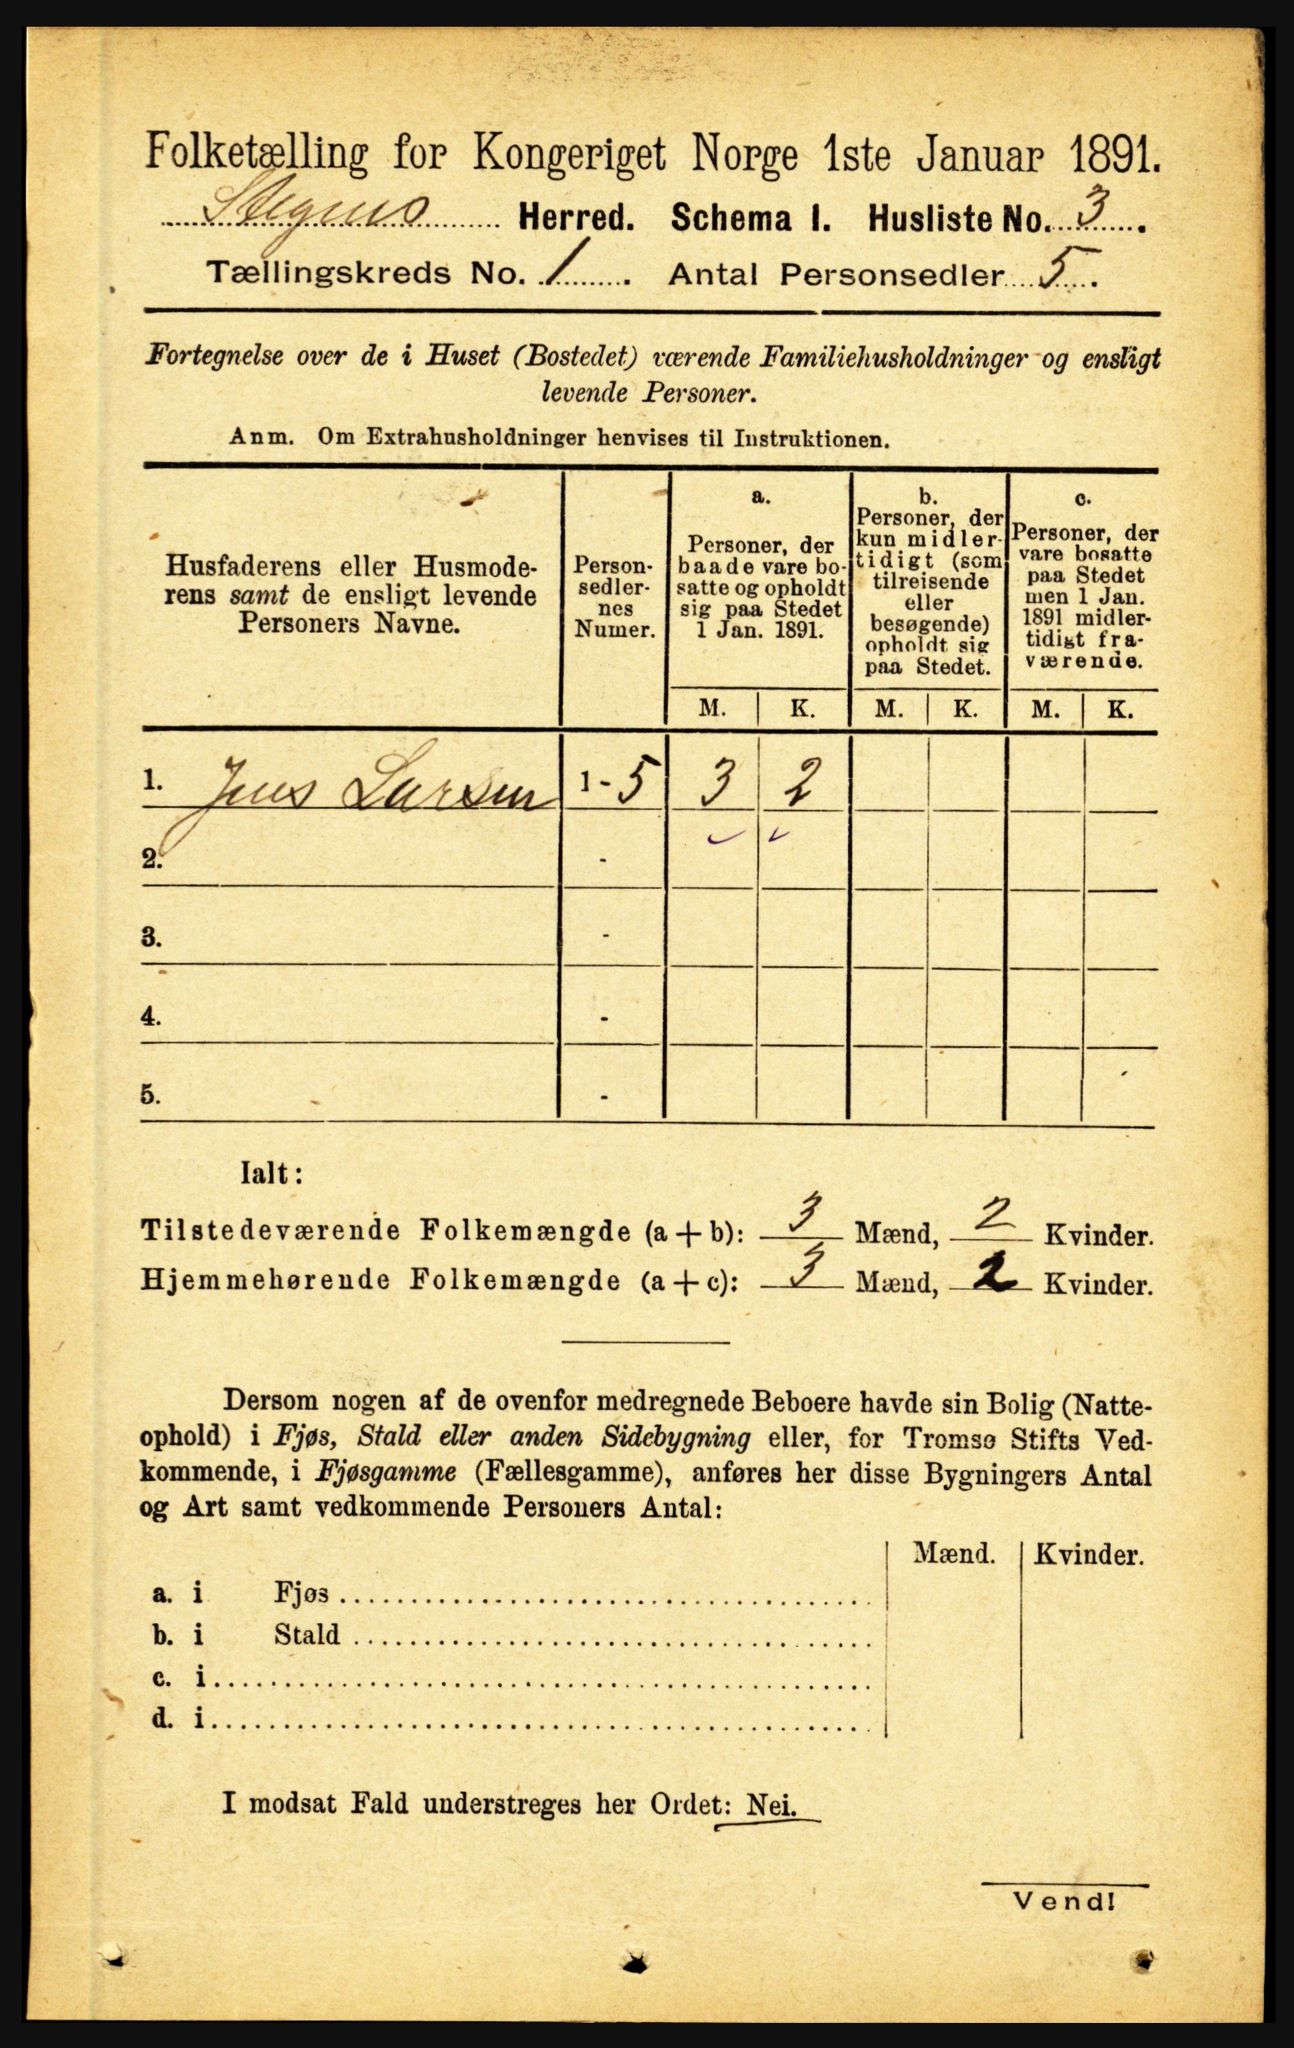 Folketælling for Kongeriget Norge 1ste Januar 1891.
Stegens Herred. Schema I. Husliste No. 3.
Tællingskreds No. 1. Antal Personsedler 5.
Fortegnelse over de i Huset (Bostedet) værende Familiehusholdninger og ensligt
levende Personer.
Anm. Om Extrahusholdninger henvises til Instruktionen.
Husfaderens eller Husmode-
rens samt de ensligt levende
Personers Navne.
Person-
sedler-
nes
Numer.
a.
Personer, der
baade vare bo-
satte og opholdt
sig paa Stedet
1 Jan. 1891.
b.
Personer, der
kun midler-
tidigt (som
tilreisende
eller
besøgende)
opholdt sig
paa Stedet.
c.
Personer, der
vare bosatte
paa Stedet
men 1 Jan.
1891 midler-
tidigt fra-
værende.
M. K. M. K. M. K.
1. Jens Larsen 1-5 3 2
2. -
3. -
4. -
5. -
Ialt:
Tilstedeværende Folkemængde (a+b): 3 Mænd, 2 Kvinder.
Hjemmehørende Folkemængde (a+c): 3 Mænd, 2 Kvinder.
Dersom nogen af de ovenfor medregnede Beboere havde sin Bolig (Natte-
ophold) i Fjøs, Stald eller anden Sidebygning eller, for Tromsø Stifts Ved-
kommende, i Fjøsgamme (Fællesgamme), anføres her disse Bygningers Antal
og Art samt vedkommende Personers Antal:
Mænd. Kvinder.
a. i Fjøs
b. i Stald
c. i
d. i
I modsat Fald understreges her Ordet: Nei.
Vend!